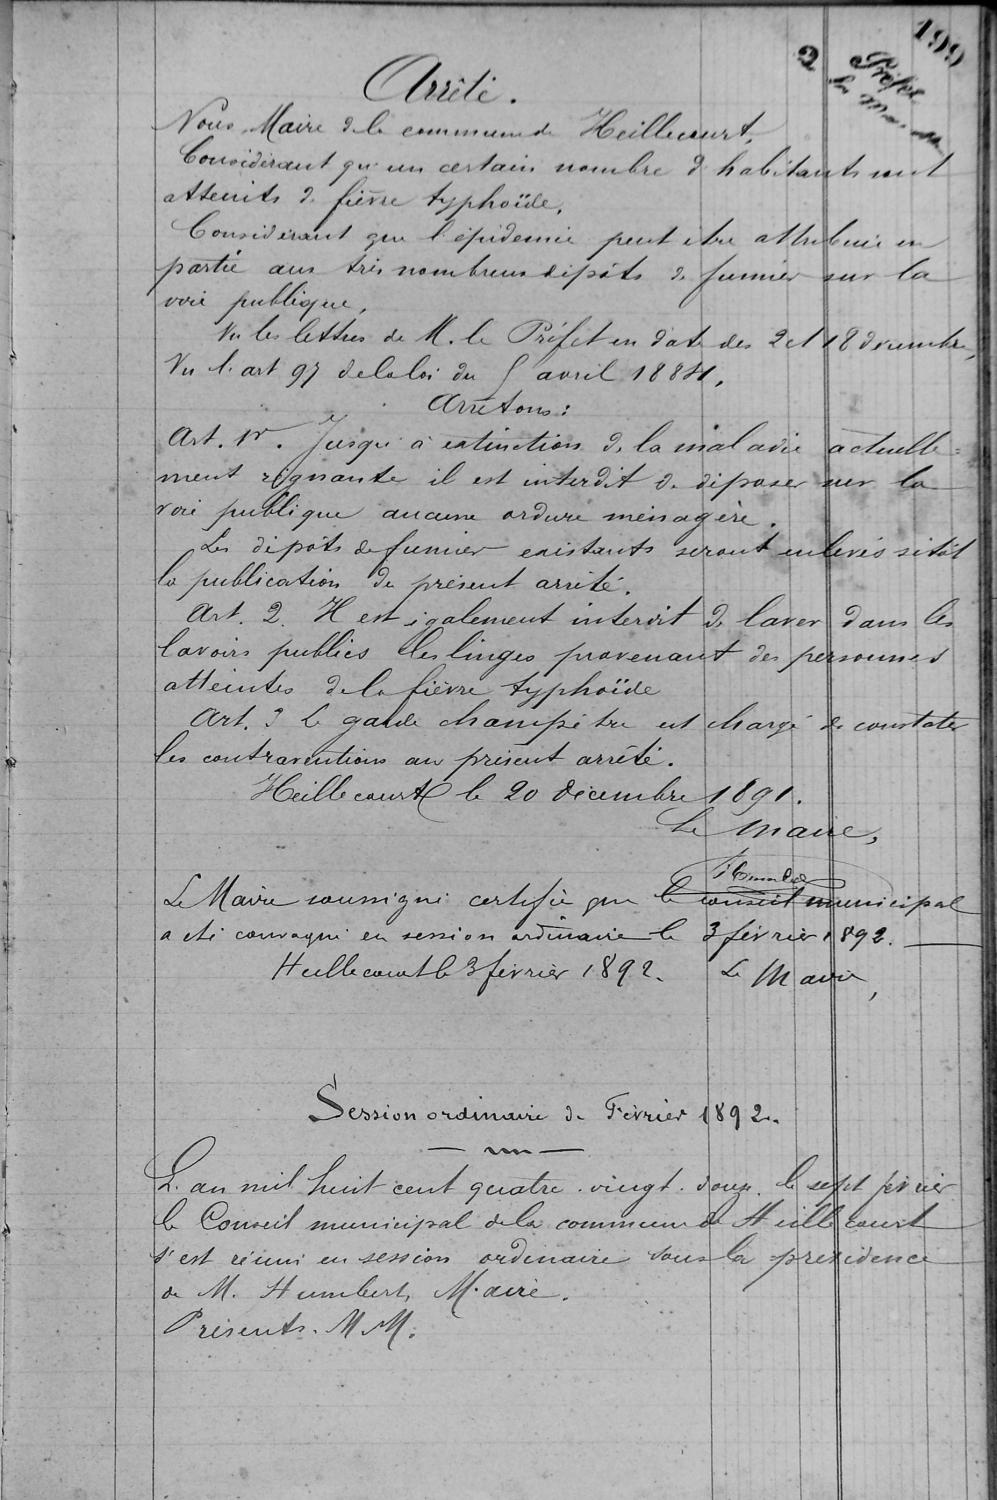 199
2
Préfet
Arrêté.
Nous Maire de la commune de Heillecourt,
Considérant qu'un certain nombre d'habitants sont
atteints de fièvre typhoïde,
Considérant que l'épidémie peut être attribuée en
partie aux très nombreux dépôts de fumier sur la
voie publique,
Vu les lettres de M. le Préfet en date des 2 et 18 décembre,
Vu l'art 97 de la loi du 5 avril 1884,
Arrêtons:
Art. 1er. Jusqu'à extinction de la maladie actuelle-
ment régnante il est interdit de déposer sur la
voie publique aucune ordure ménagère.
Les dépôts de fumier existants seront enlevés sitôt
la publication du présent arrêté.
Art. 2. Il est également interdit de laver dans les
lavoirs publics les linges provenant des personnes
atteintes de la fièvre typhoïde
Art. 3 Le garde champêtre est chargé de constater
les contraventions au présent arrêté.
Heillecourt le 20 décembre 1891.
Le Maire,
Le Maire soussigné certifie que le conseil municipal
a été convoqué en session ordinaire le 3 février 1892.
Heillecourt le 3 février 1892. Le Maire,
Session ordinaire de Février 1892.
L'an mil huit cent quatre-vingt-douze, le sept février
le Conseil municipal de la commune de Heillecourt
s'est réuni en session ordinaire sous la présidence
de M. Humbert, Maire.
Présents. M M: